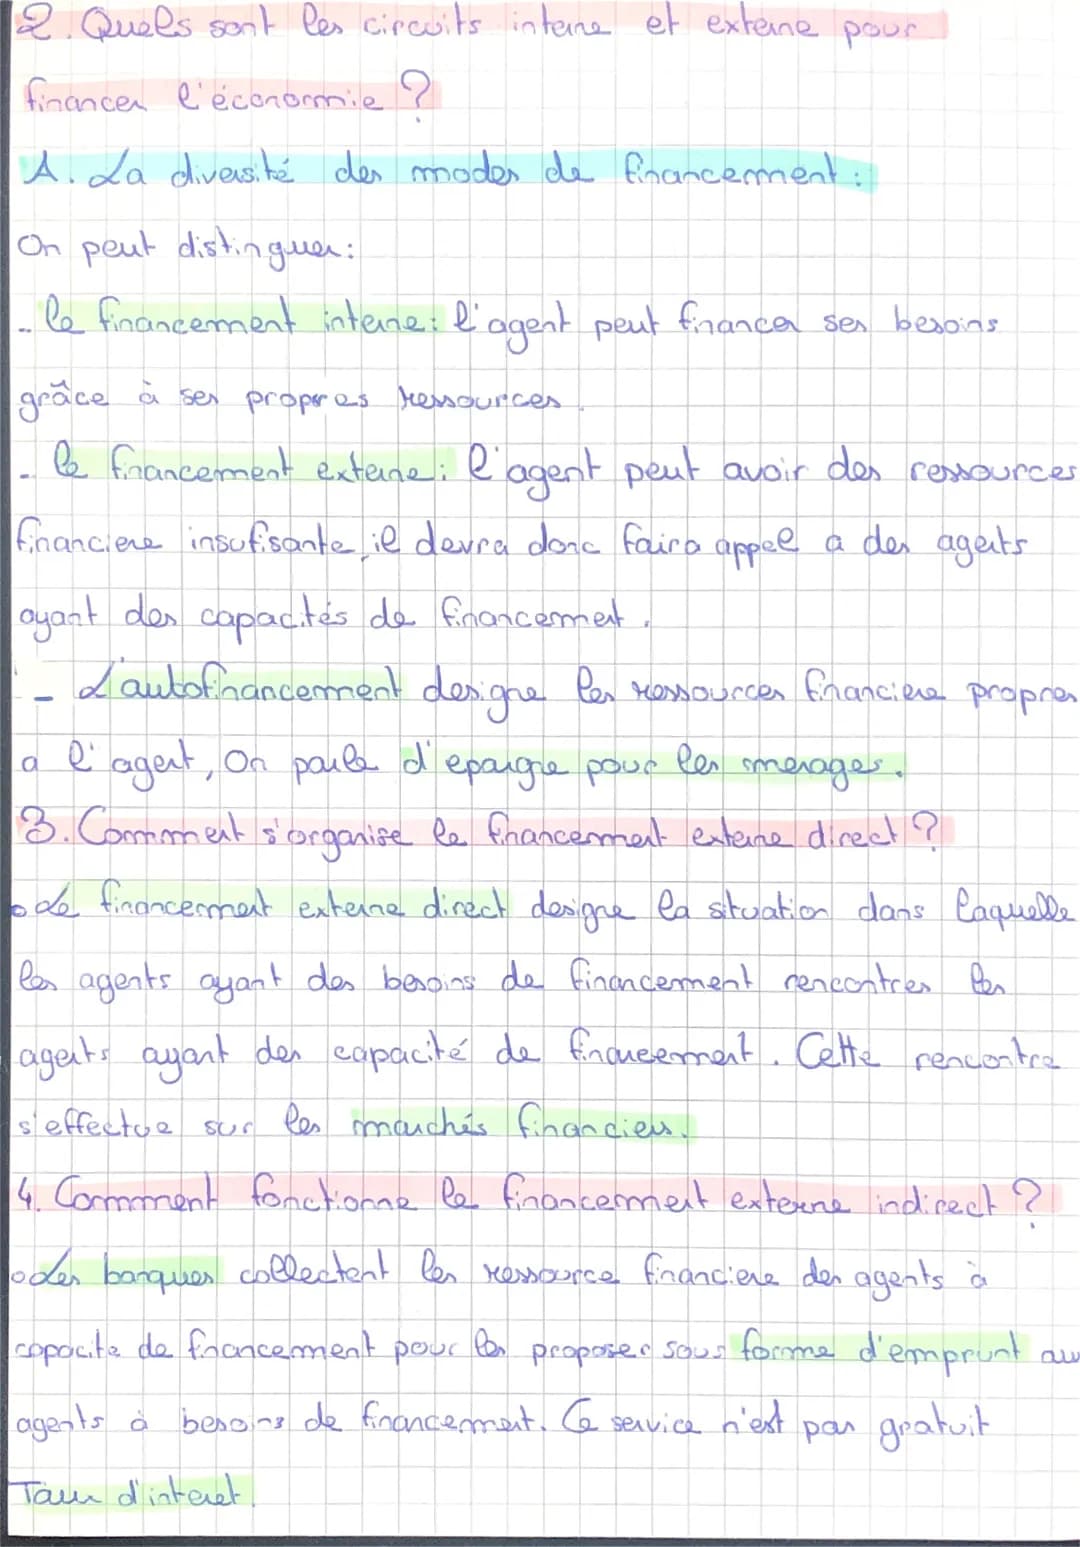 2. Quels sont les circuits interne et externe pour
financer l'économie ?
A. La diversité des modes de financement :
On peut distinguer :
- le financement interne : l'agent peut financer ses besoins
grâce à ses propres ressources.
- le financement externe : l'agent peut avoir des ressources
financiere insufisante, il devra donc faire appel a des agents
ayant des capacités de financement.
- L'autofinancement designe les ressources financiere propres
a l'agent, On parle d'epargne pour les menages.
3. Comment s'organise le financement externe direct ?
Le financement externe direct designe la situation dans laquelle
les agents ayant des besoins de financement rencontres les
agents ayant des capacité de financement. Cette rencontre
s'effectue sur les marchés financiers.
4. Comment fonctionne le financement externe indirect ?
Les banques collectent les ressource financiere des agents à
capacite de financement pour les proposer sous forme d'emprunt au
agents à besoins de financement. Ce service n'est pas gratuit
Taux d'interet.